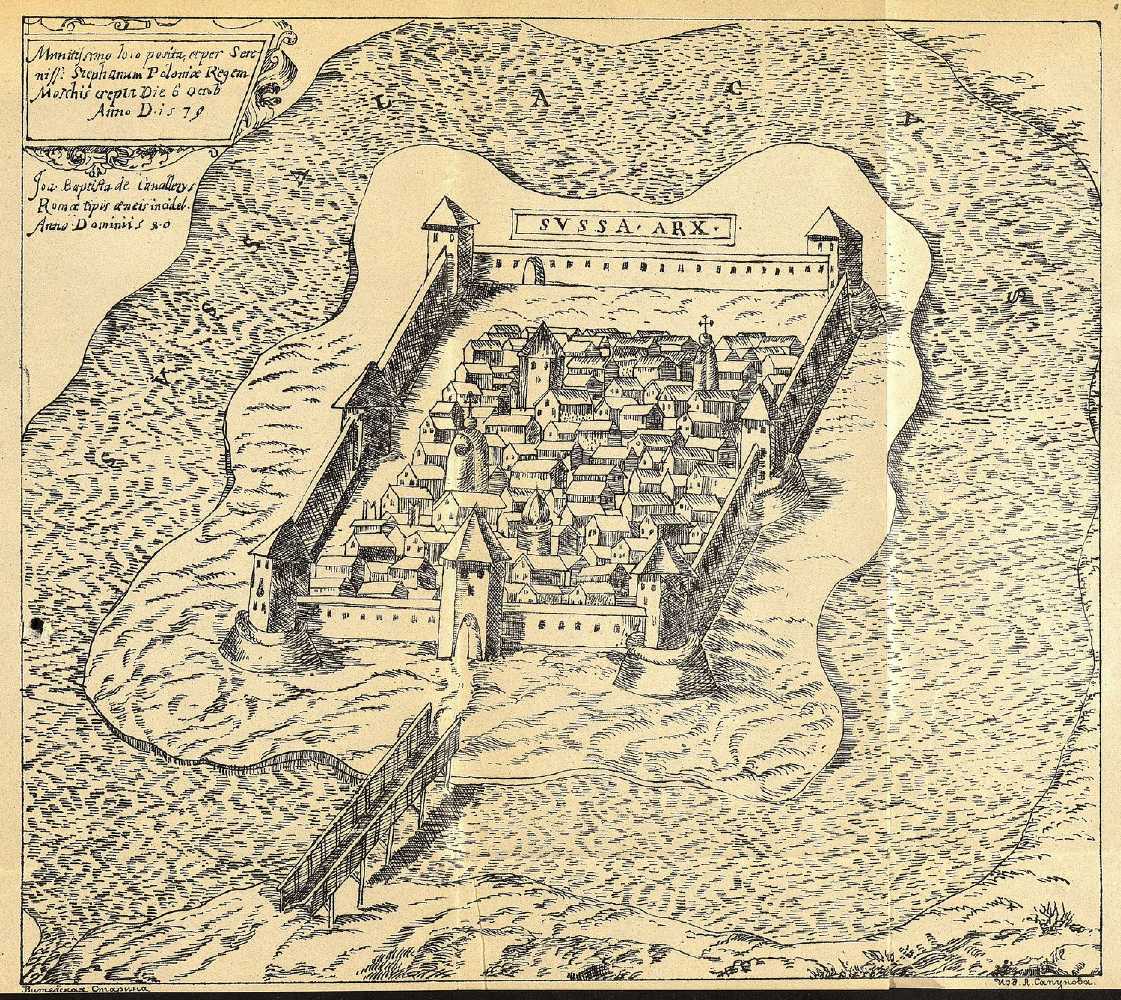 Munitissimo loco posita, et per Sere
niss: Stephanum Poloniæ Regem
Moschis erepta Die 6 Octob
Anno D. 1579
Joa Baptista de Cauallerys
Romæ tipis æneis incideb.
Anno Domini 1580
LACVS
SVSSA
SVSSA · ARX ·
Витебская Старина
Изд. А. Сапунова.